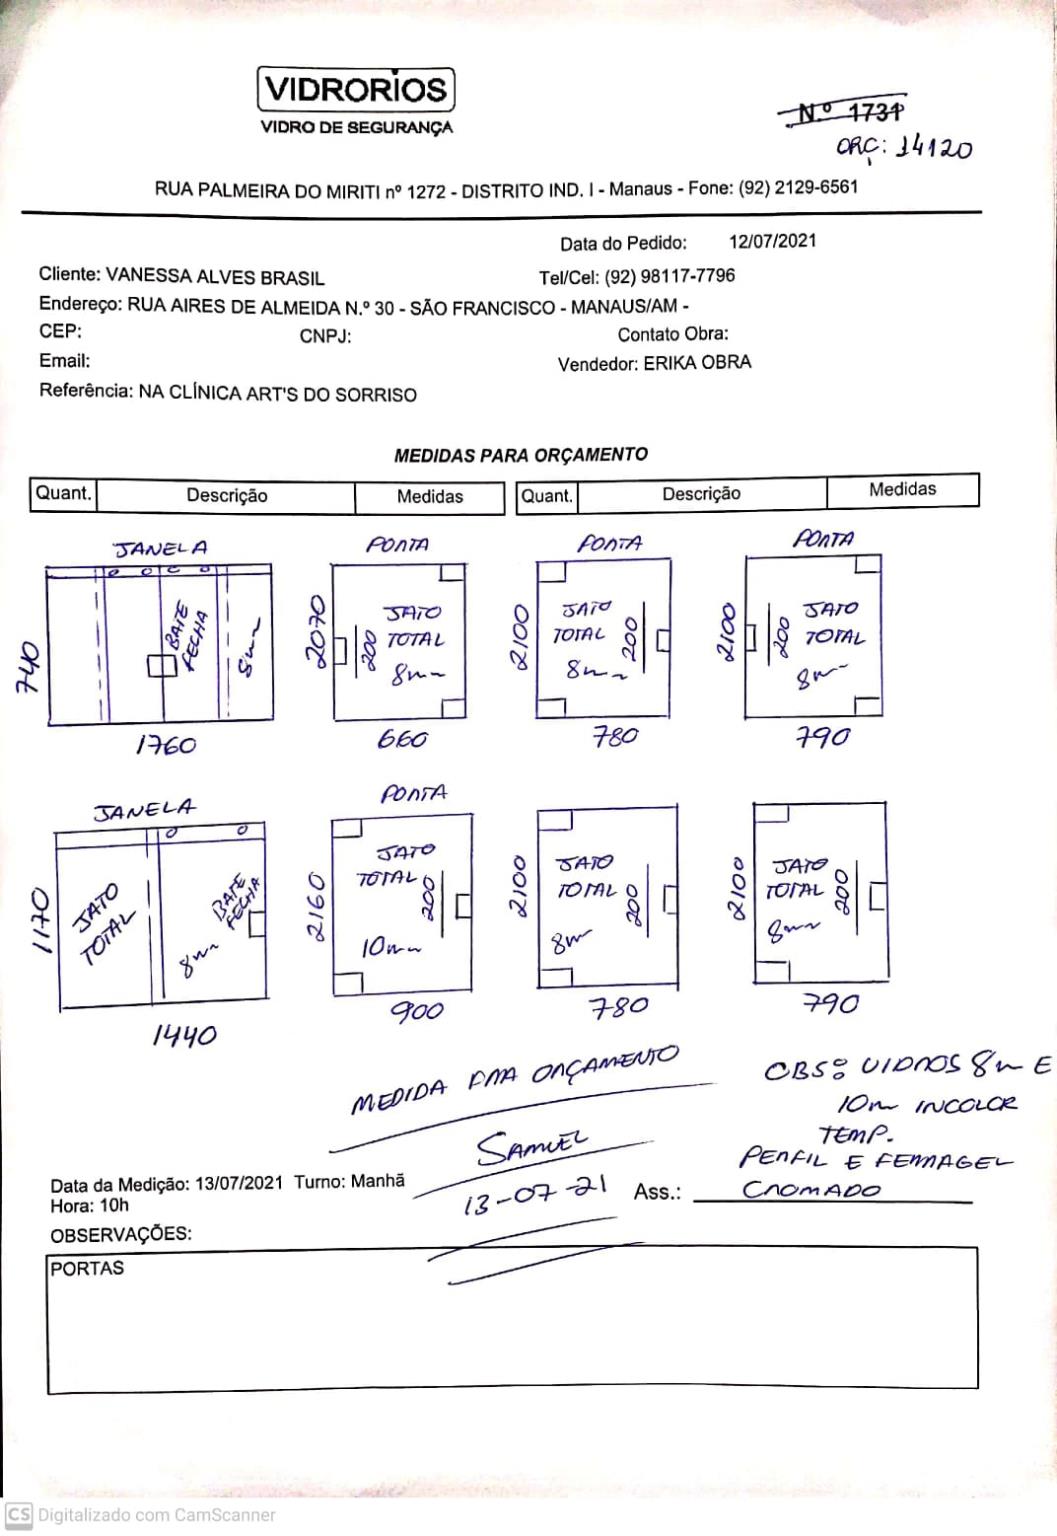 VIDRORIOS
VIDRO DE SEGURANÇA
N.º 1731
ORÇ: 14120
RUA PALMEIRA DO MIRITI nº 1272 - DISTRITO IND. I - Manaus - Fone: (92) 2129-6561
Data do Pedido: 12/07/2021
Cliente: VANESSA ALVES BRASIL Tel/Cel: (92) 98117-7796
Endereço: RUA AIRES DE ALMEIDA N.º 30 - SÃO FRANCISCO - MANAUS/AM -
CEP: CNPJ: Contato Obra:
Email: Vendedor: ERIKA OBRA
Referência: NA CLÍNICA ART'S DO SORRISO
MEDIDAS PARA ORÇAMENTO
Quant. Descrição Medidas Quant. Descrição Medidas
JANELA
740
BATE
FECHA
8mm
1760
PORTA
2070
200
JATO
TOTAL
8mm
660
PORTA
2100
JATO
TOTAL
200
8mm
780
PORTA
2100
200
JATO
TOTAL
8mm
790
JANELA
1170
JATO
TOTAL
BATE
FECHA
8mm
1440
PORTA
2160
JATO
TOTAL
200
10mm
900
2100
JATO
TOTAL
200
8mm
780
2100
JATO
TOTAL
200
8mm
790
MEDIDA PARA ORÇAMENTO
SAMUEL
13-07-21
OBS: VIDROS 8m E
10m INCOLOR
TEMP.
PERFIL E FERRAGEL
CROMADO
Data da Medição: 13/07/2021 Turno: Manhã
Hora: 10h
Ass.:
OBSERVAÇÕES:
PORTAS
CS Digitalizado com CamScanner